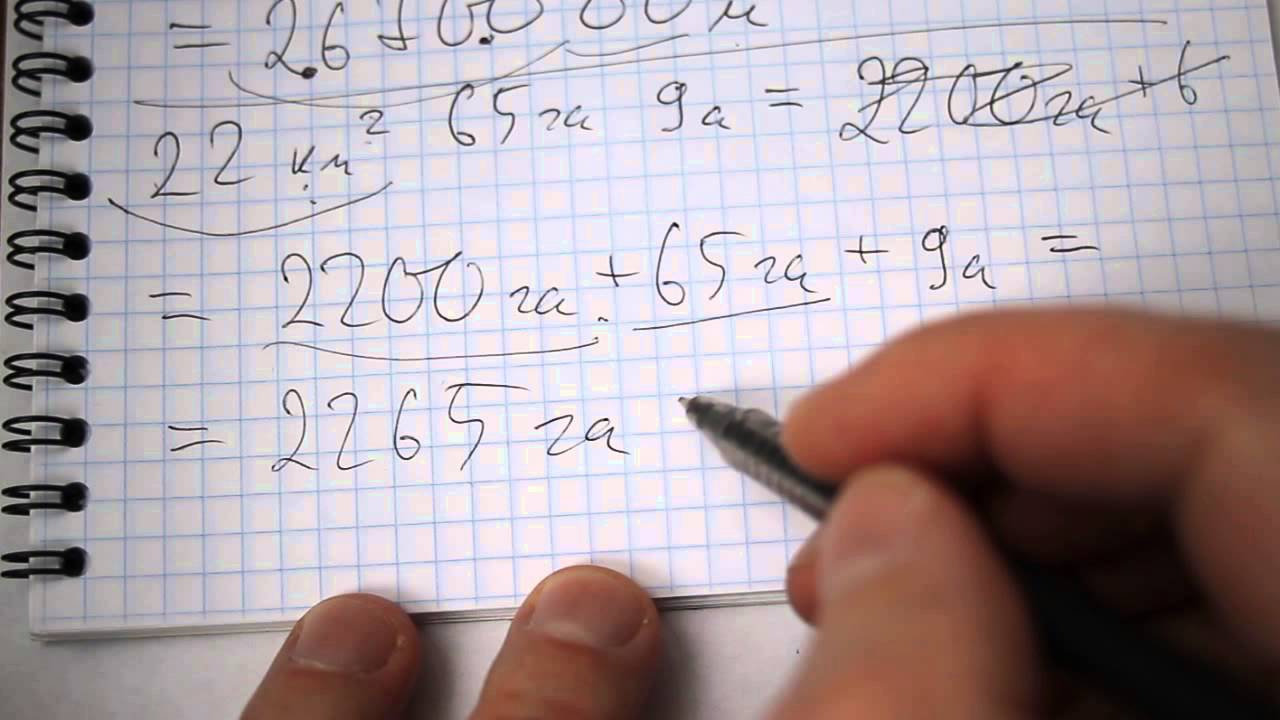 = 26 10.000 м
22 км² 65 га 9 а = 2200 га + 6
= 2200 га + 65 га + 9 а =
= 2265 га